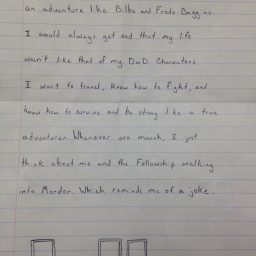 an adventure like Bilbo and Frodo Baggins.
I would always get sad that my life
wasn't like that of my DnD characters
I want to travel, know how to fight, and
know how to survive and be strong like a true
adventurer. Whenever we march, I just
think about me and the Fellowship walking
into Mordor. Which reminds me of a joke.